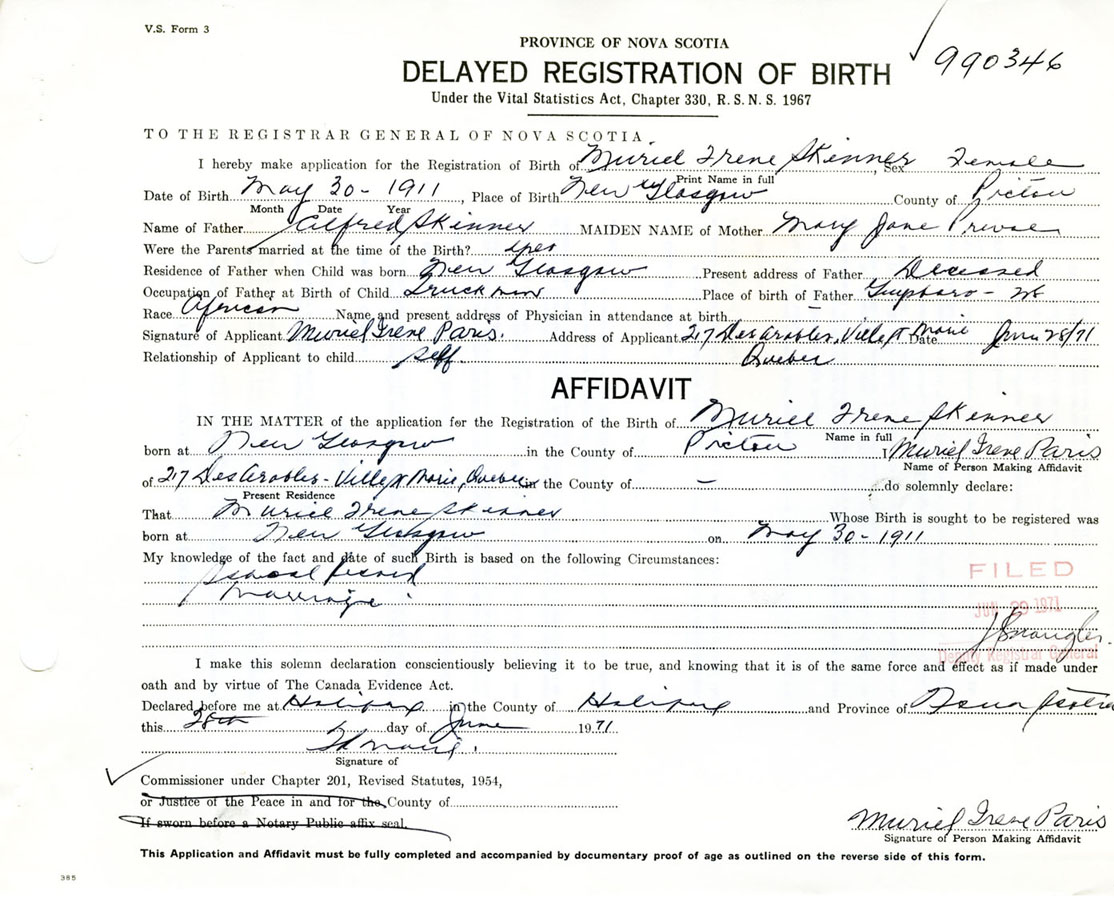 V.S. Form 3
PROVINCE OF NOVA SCOTIA
990346
DELAYED REGISTRATION OF BIRTH
Under the Vital Statistics Act, Chapter 330, R. S. N. S. 1967
TO THE REGISTRAR GENERAL OF NOVA SCOTIA
I hereby make application for the Registration of Birth of Muriel Irene Skinner, Sex Female
Print Name in full
Date of Birth May 30 - 1911, Place of Birth New Glasgow County of Pictou
Month Date Year
Name of Father Alfred Skinner MAIDEN NAME of Mother Mary Jane
Were the Parents married at the time of the Birth? yes
Residence of Father when Child was born New Glasgow Present address of Father Deceased
Occupation of Father at Birth of Child Truckman Place of birth of Father Guysboro -
Race African Name and present address of Physician in attendance at birth -
Signature of Applicant Muriel Irene Paris. Address of Applicant 217 Des Erables, Ville Marie Date June 28/71
Relationship of Applicant to child self Quebec
AFFIDAVIT
IN THE MATTER of the application for the Registration of the Birth of Muriel Irene Skinner
Name in full
born at New Glasgow in the County of Pictou I Muriel Irene Paris
Name of Person Making Affidavit
of 217 Des Erables - Ville Marie, Quebec in the County of - do solemnly declare:
Present Residence
That Muriel Irene Skinner Whose Birth is sought to be registered was
born at New Glasgow on May 30 - 1911
My knowledge of the fact and date of such Birth is based on the following Circumstances:
School record
Marriage
FILED
JUN 29 1971
Deputy Registrar General
I make this solemn declaration conscientiously believing it to be true, and knowing that it is of the same force and effect as if made under
oath and by virtue of The Canada Evidence Act.
Declared before me at Halifax in the County of Halifax and Province of Nova Scotia
this 28th day of June 1971
Signature of
Commissioner under Chapter 201, Revised Statutes, 1954,
or Justice of the Peace in and for the County of
If sworn before a Notary Public affix seal.
Muriel Irene Paris
Signature of Person Making Affidavit
This Application and Affidavit must be fully completed and accompanied by documentary proof of age as outlined on the reverse side of this form.
385